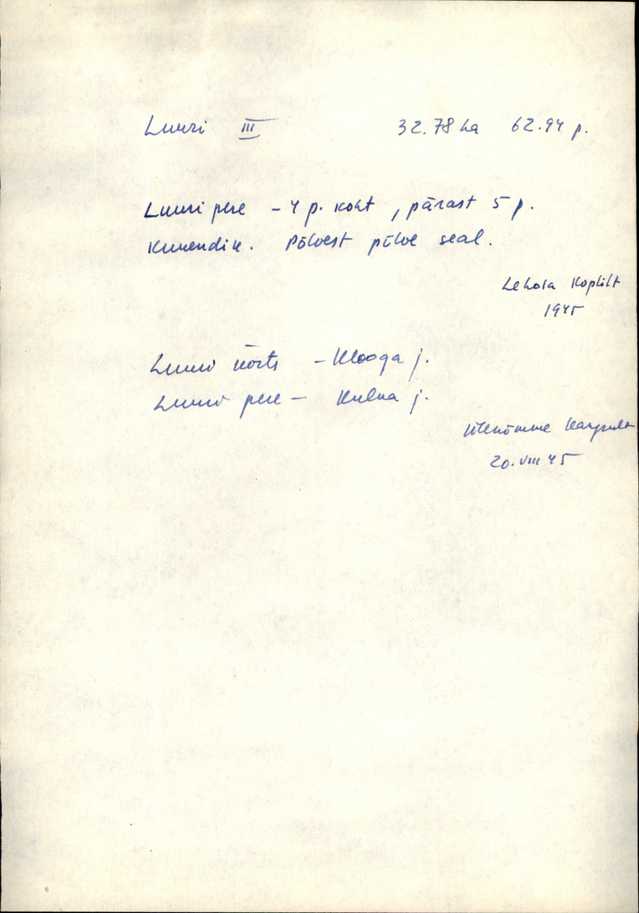 Luuri III 32.78 ha 62.94 p.
Luuri pere - 4 p. koht, pärast 5 p.
Kunendik. Põlvest põlve seal.
Lehola Koplilt
1945
Luuri kõrts - Klooga j.
Luuri pere - Kulna j.
20.VIII 45